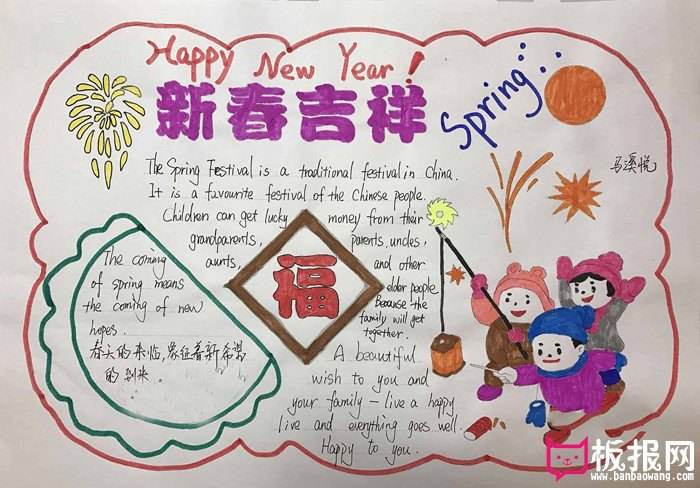 Happy New Year!
新春吉祥
Spring
马溪悦
The Spring Festival is a traditional festival in China.
It is a favourite festival of the Chinese people.
Children can get lucky money from their
grandparents, parents, uncles,
aunts, and other
elder people
Because the
family will get
together.
福
The coming
of spring means
the coming of new
hopes
春天的来临,象征着新希望
的到来
A beautiful
wish to you and
your family - live a happy
live and everything goes well.
Happy to you.
板报网
www.banbaowang.com